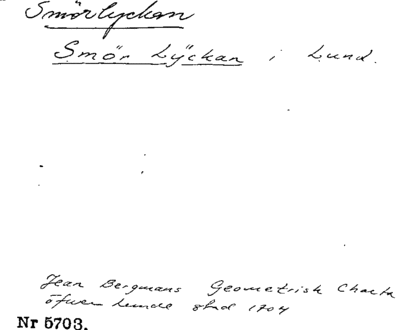 Smörlyckan
Smör Lÿckan i Lund.
Jean Bergmans Geometrisk Charta
öfwer Lunde stad 1704
Nr 5703.